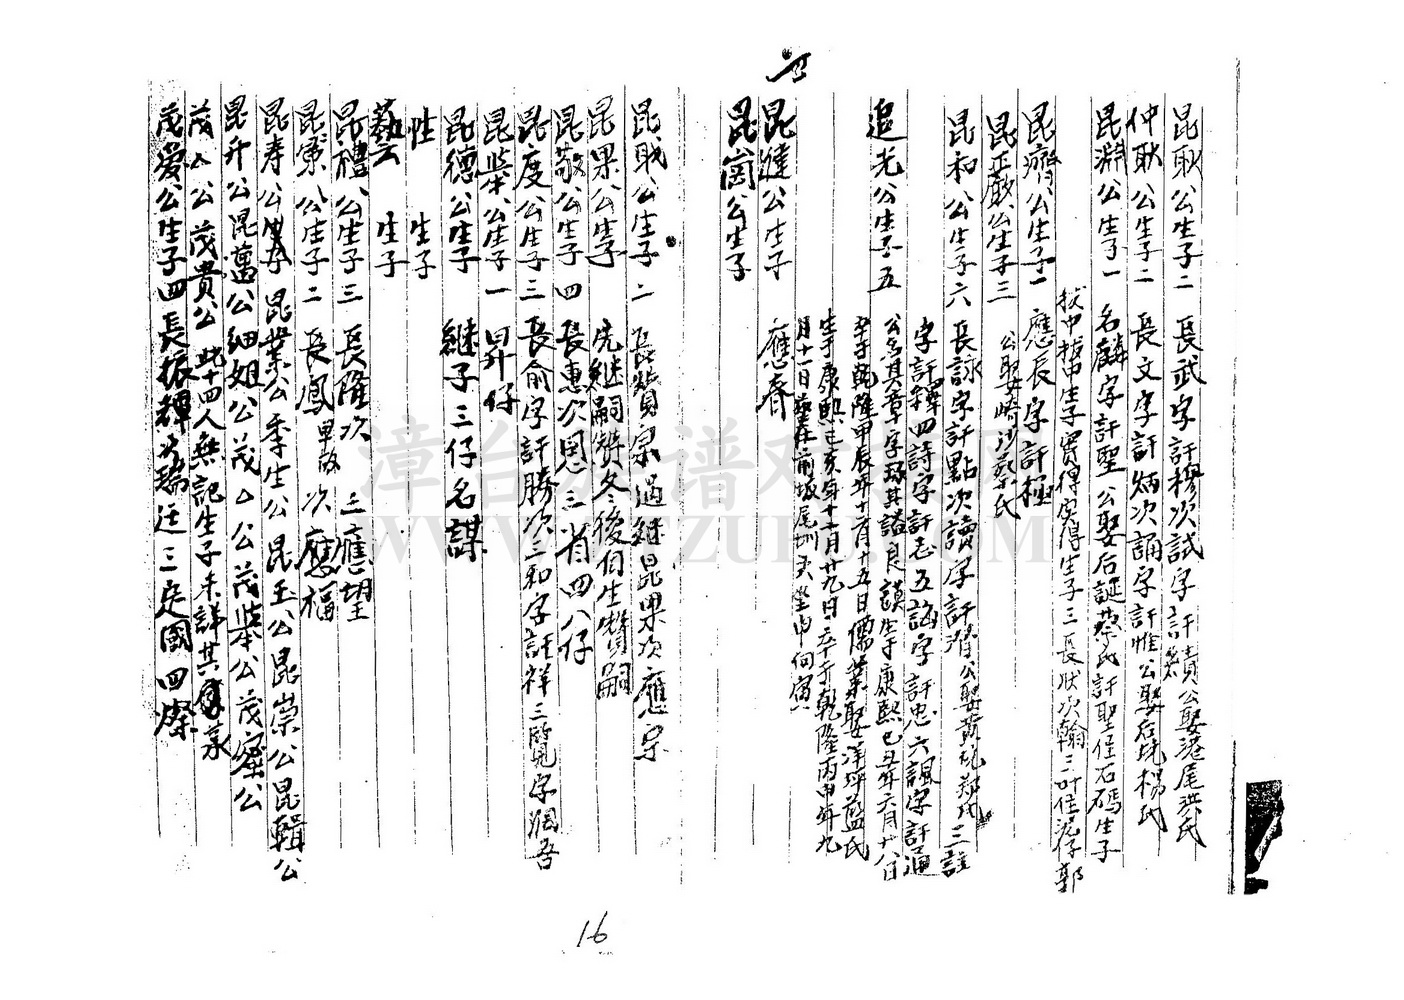 昆耿公生子二 長武字訏穆次試字訏績公娶港尾洪氏
仲耿公生子二 長文字訏炳次誦字訏惟公娶后坑楊氏
昆淵公生子一 名麟字訏聖公娶后誕蔡氏訏聖住石碼生子
拔中哲中生子實得寅得生子三長狀次翰三叶住潭仔郭
昆齊公生子一 應長字訏極
昆巖公生子三 公娶崎沙蔡氏
昆和公生子六 長詠字訏點次讀字訏潜公娶黄坑鄭氏三註
字訏釋四詩字訏志五誨字訏忠六諷字訏通
追光公生子五 公名其章字琢其謚良謨生于康熙己丑年六月十八日
卒于乾隆甲辰年十一月十五日儒業娶洋坪藍氏
生于康熙己亥年十二月廿九日卒于乾隆丙申年九
月十一日葬在前坂尾圳天坐申向寅
昆漣公生子 應春
昆崗公生子
昆戝公生子二 長贊宗過継昆果次應宗
昆果公生子 先継嗣贊冬後自生贊嗣
昆敬公生子四 長惠次恩三省四八仔
昆度公生子三 長俞字訏勝次三和字訏祥三覽字淵吾
昆柴公生子一 昇仔
昆德公生子 継子三仔名謀
性 生子
藝 生子
昆禮公生子三 長隆次 三應望
昆策公生子二 長鳳早故次應福
昆寿公 昆業公季生公昆玉公昆崇公昆輯公
昆升公昆舊公細姐公茂△公茂柴公茂蜜公
茂△公茂貴公此十四人無記生子未詳其
茂爱公生子四長振輝次瑞廷三定國四燦
16
漳台族谱对接网
WWW.ZTZUPU.COM